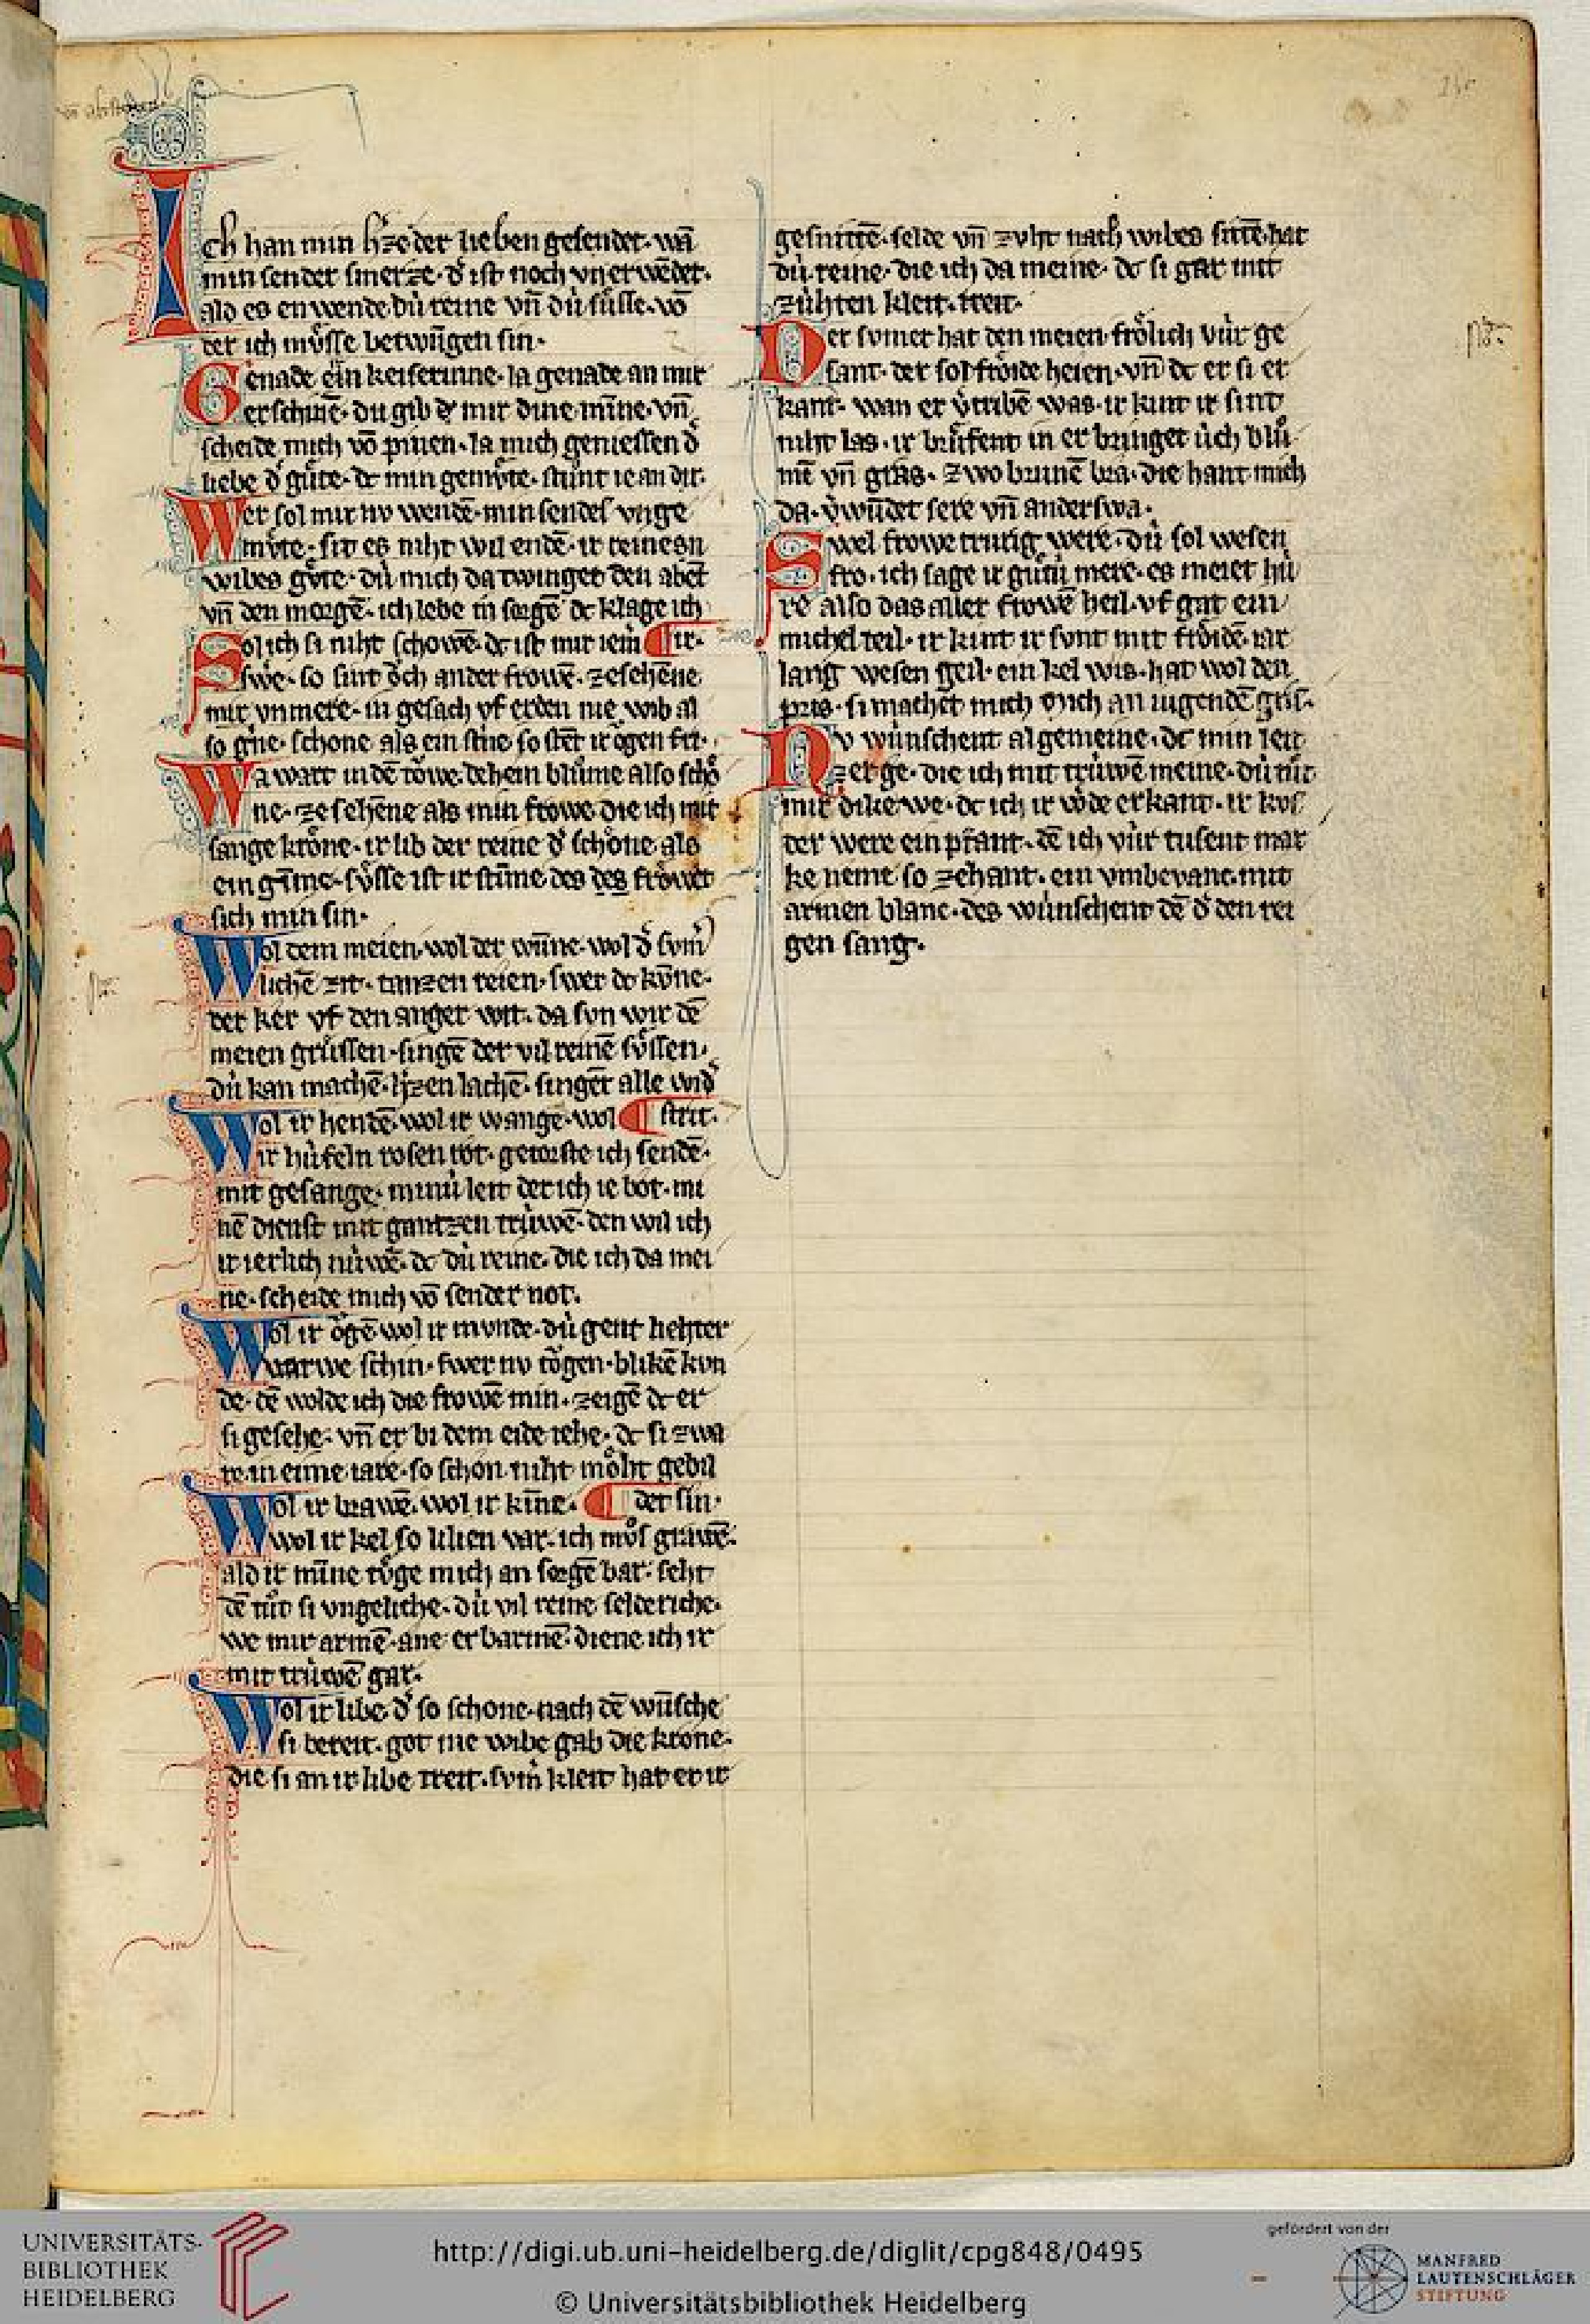 Ich han min h̾ze der lieben gesendet. wā
min sender smerze. d̾ ist noch vnerwēdet.
ald es enwende dú reine vn̄ dú sůsse. vō
der ich mv̊sse betwūgen sin.
Genade ein keiserinne. la genade an mir
erschinē. du gib dc mir dine mīne. vn̄
scheide mich vō pinen. la mich geniessen d̾
liebe d̾ gůte. dc min gemv̊te. stůnt ie an dir.
Wer sol mir nv wendē. min sendes vnge
mv̊te. sit es niht wil endē. ir reinesn
wibes gv̊te. dú mich da twinget den abēt
vn̄ den morgē. ich lebe in sorgē dc klage ich
Sol ich si niht schowē. dc ist mir iem̾ ¶ ir.
swe. so sint ȯch ander frowē. ze sehēne
mir vnmere. in gesach vf erden nie wib al
so g̾ne. schone als ein st̾ne so stēt ir ȯgen fir.
Wa wart in dē tȯwe. dehein blůme also schȯ
ne. ze sehēne als min frowe. die ich mit
sange krȯne. ir lib der reine d̾ schȯne als
ein gīme. sv̊sse ist ir stīme des des frȯwet
sich min sin.
Wol dem meien. wol der wūne. wol d̾ svm̾
lichē zit. tanzen reien. swer dc kv̄ne.
der ker vf den anger wit. da svn wir dē
meien grůssen. singē der vil reinē sv̊ssen.
dú kan machē. h̾zen lachē. singēt alle wid̾
Wol ir hendē. wol ir wange. wol ¶ strit.
ir húfeln rosen rot. getorste ich sendē.
mit gesange. minú leit der ich ie bot. mi
nē dienst mit gantzen trúwē. den wil ich
ir ierlich núwē. dc dú reine. die ich da mei
ne. scheide mich vō sender not.
Wol ir ȯgē wol ir mvnde. dú gent liehter
varwe schin. swer nv tȯgen. blikē kvn
de. dē wolde ich die frowē min. zeigē dc er
si gesehe. vn̄ er bi dem eide iehe. dc si zwa
re. in eime iare. so schon niht mȯht gebil
Wol ir brawē. wol ir kīne. ¶ det sin.
wol ir kel so lilien var. ich mv̊s grawē.
ald ir mīne tȯge mich an sorgē bar. seht
dē tůt si vngeliche. dú vil reine selderiche.
we mir armē. ane erbarmē. diene ich ir
mit trúwē gar.
Wol ir libe. d̾ so schone. nach dē wūsche
si bereit. got nie wibe gab die krone.
die si an ir libe treit. svm̾ kleit hat er ir
gesnittē. selde vn̄ zvht nach wibes sittē. hat
dú reine. die ich da meine. dc si gar mit
zúhten kleit. treit.
Der svmer hat den meien frȯlich vúr ge
sant. der sol frȯide heien. vn̄ dc er si er
kant. wan er v̾tribē was. ir kint ir sint
niht las. ir brůfent in er bringet úch blů
mē vn̄ gras. zwo brunē bra. die hant mich
da. v̾wūdet sere vn̄ anderswa.
Swel frowe trurig were. dú sol wesen
fro. ich sage ir gůtú mere. es meiet hú
re also das aller frowē heil. vf gat ein
michel teil. ir kint ir svnt mit frȯidē. iar
lang wesen geil. ein kel wis. hat wol den
pris. si machet mich ȯich an iugendē gris.
Nv wúnschent algemeine. dc min leit
zerge. die ich mit trúwē meine. dú tůt
mir dike we. dc ich ir wde erkant. ir kus
der were ein pfant. dē ich vúr tusent mar
ke neme so zehant. ein vmbevanc. mit
armen blanc. des wúnschent dē d̾ den rei
gen sang.
UNIVERSITÄTS-
BIBLIOTHEK
HEIDELBERG
http://digi.ub.uni-heidelberg.de/diglit/cpg848/0495
© Universitätsbibliothek Heidelberg
gefördert von der
MANFRED
LAUTENSCHLÄGER
STIFTUNG